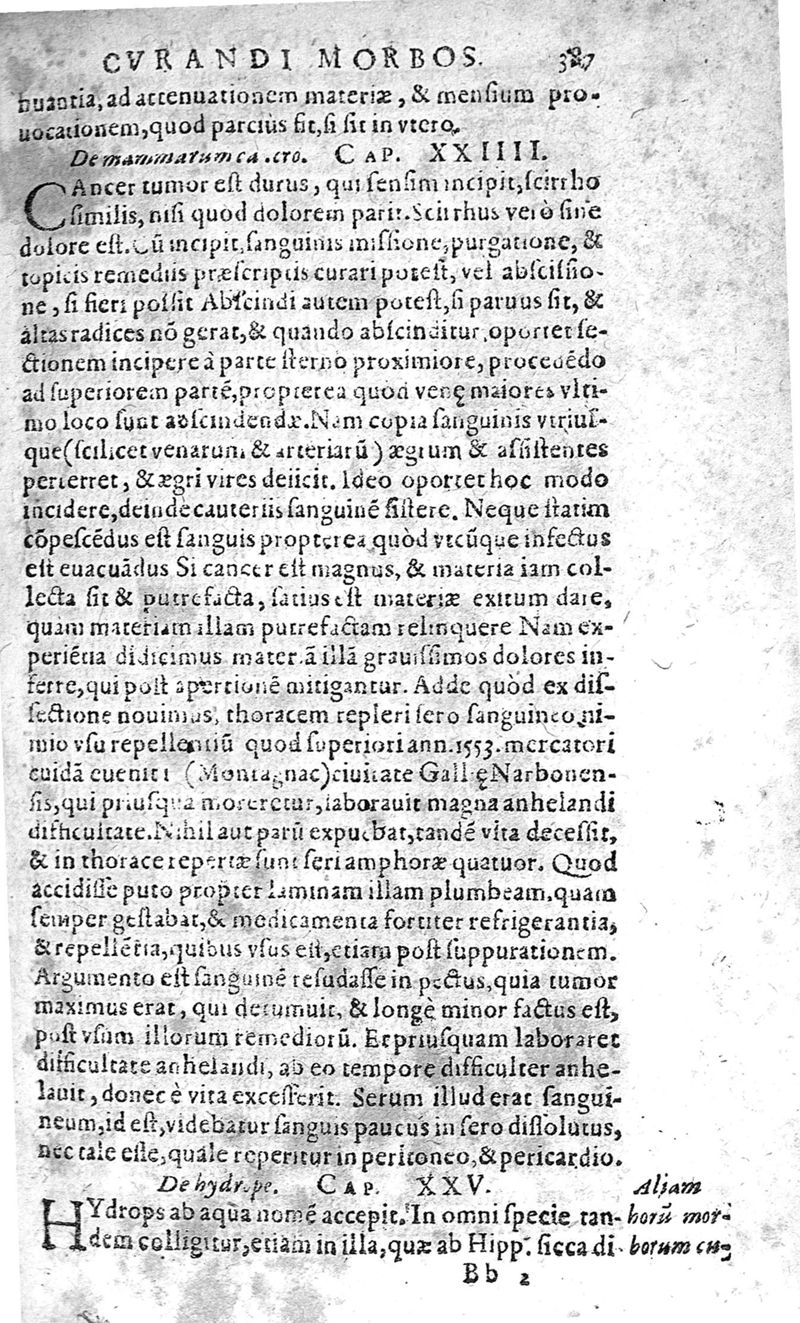 CVRANDI MORBOS. 387
nuantia, ad attenuationem materiæ, & mensium pro-
uocationem, quod parciùs fit, si sit in vtero.
De mammarum ca cro. CAP. XXIIII.
CAncer tumor est durus, qui sensim incipit, scirrho
similis, nisi quod dolorem parit. Scirrhus verò sine
dolore est. Cũ incipit, sanguinis missione, purgatione, &
topicis remediis præscriptis curari potest, vel abscissio-
ne, si fieri possit Abscindi autem potest, si paruus sit, &
altas radices nõ gerat, & quando abscinditur, oportet se-
ctionem incipere à parte sterno proximiore, procedẽdo
ad superiorem partẽ, propterea quod venę maiores vlti-
mo loco sunt abscindendæ. Nam copia sanguinis vtrius-
que (scilicet venarum & arteriarũ) ægrum & assistentes
perterret, & ægri vires deiicit. Ideo oportet hoc modo
incidere, deinde cauteriis sanguinẽ sistere. Neque statim
cõpescẽdus est sanguis propterea quòd vtcũque infectus
est euacuãdus Si cancer est magnus, & materia iam col-
lecta sit & putrefacta, satius est materiæ exitum dare,
quàm materiam illam putrefactam relinquere Nam ex-
periẽtia didicimus materiã illã grauissimos dolores in-
ferre, qui post apertionẽ mitigantur. Adde quòd ex dis-
sectione nouimus, thoracem repleri sero sanguineo, ni-
mio vsu repellentiũ quod superiori ann. 1553. mercatori
cuidã euenit (Montagnac) ciuitate Gallię Narbonen-
sis, qui priusquã moreretur, laborauit magna anhelandi
difficultate. Nihil aut parũ expuebat, tandẽ vita decessit,
& in thorace repertæ sunt seri amphoræ quatuor. Quod
accidisse puto propter laminam illam plumbeam, quam
semper gestabat, & medicamenta fortiter refrigerantia,
& repellẽtia, quibus vsus est, etiam post suppurationem.
Argumento est sanguinẽ resudasse in pectus, quia tumor
maximus erat, qui detumuit, & longè minor factus est,
post vsum illorum remediorũ. Et priusquam laboraret
difficultate anhelandi, ab eo tempore difficulter anhe-
lauit, donec è vita excesserit. Serum illud erat sangui-
neum, id est, videbatur sanguis paucus in sero dissolutus,
nec tale esse, quale reperitur in peritoneo, & pericardio.
De hydrope. CAP. XXV.
HYdrops ab aqua nomẽ accepit. In omni specie tan-
dem colligitur, etiam in illa, quæ ab Hipp. sicca di-
Aliam
horũ mor-
borum cu-
Bb 2